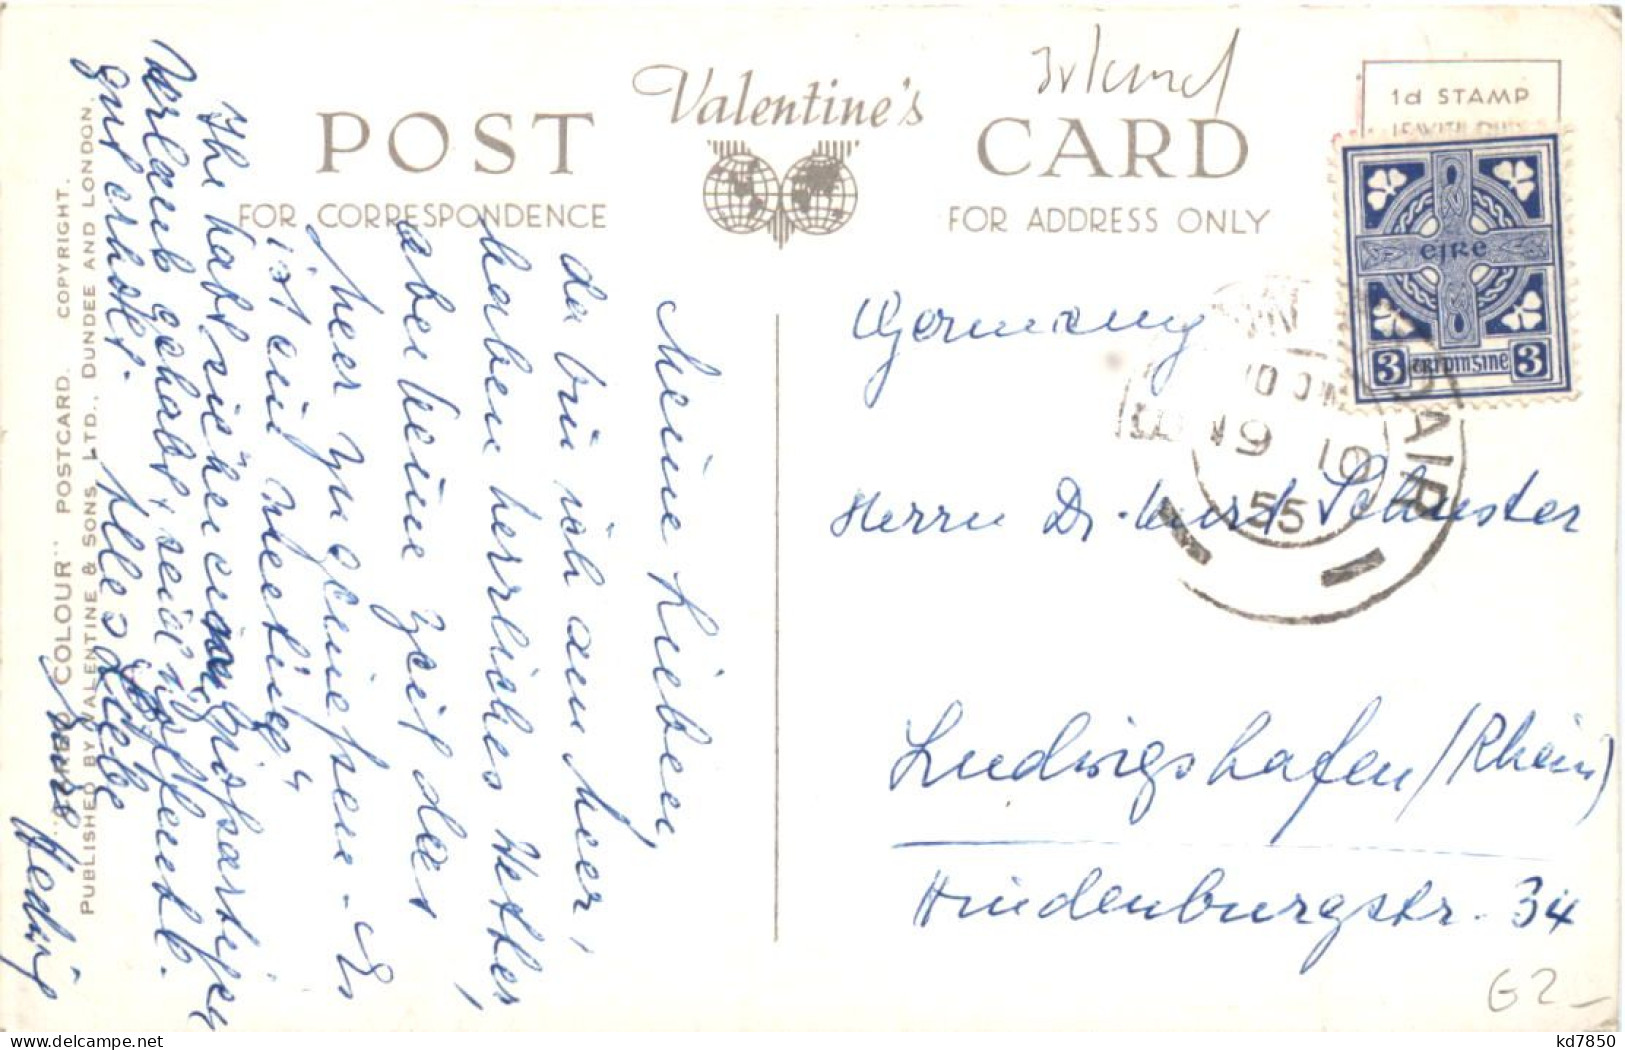 Irland
Valentine's
POST CARD
1d STAMP
FOR CORRESPONDENCE
FOR ADDRESS ONLY
EIRE
3 3
19 10
55
Meine Lieben,
da bin ich am Meer,
haben herrliches Wetter,
aber keine Zeit das
Meer zu geniessen - Es
ist ein „Meeting“
Ihr habt sicher einen grossartigen
Urlaub gehabt, seid hoffentl.
gut erholt. Alles Liebe
Eure
Hedwig
Germany
Herrn Dr. Kurt Schuster
Ludwigshafen (Rhein)
Hindenburgstr. 34
COLOUR" POSTCARD. COPYRIGHT.
PUBLISHED BY VALENTINE & SONS, LTD., DUNDEE AND LONDON.
G2
kd7850